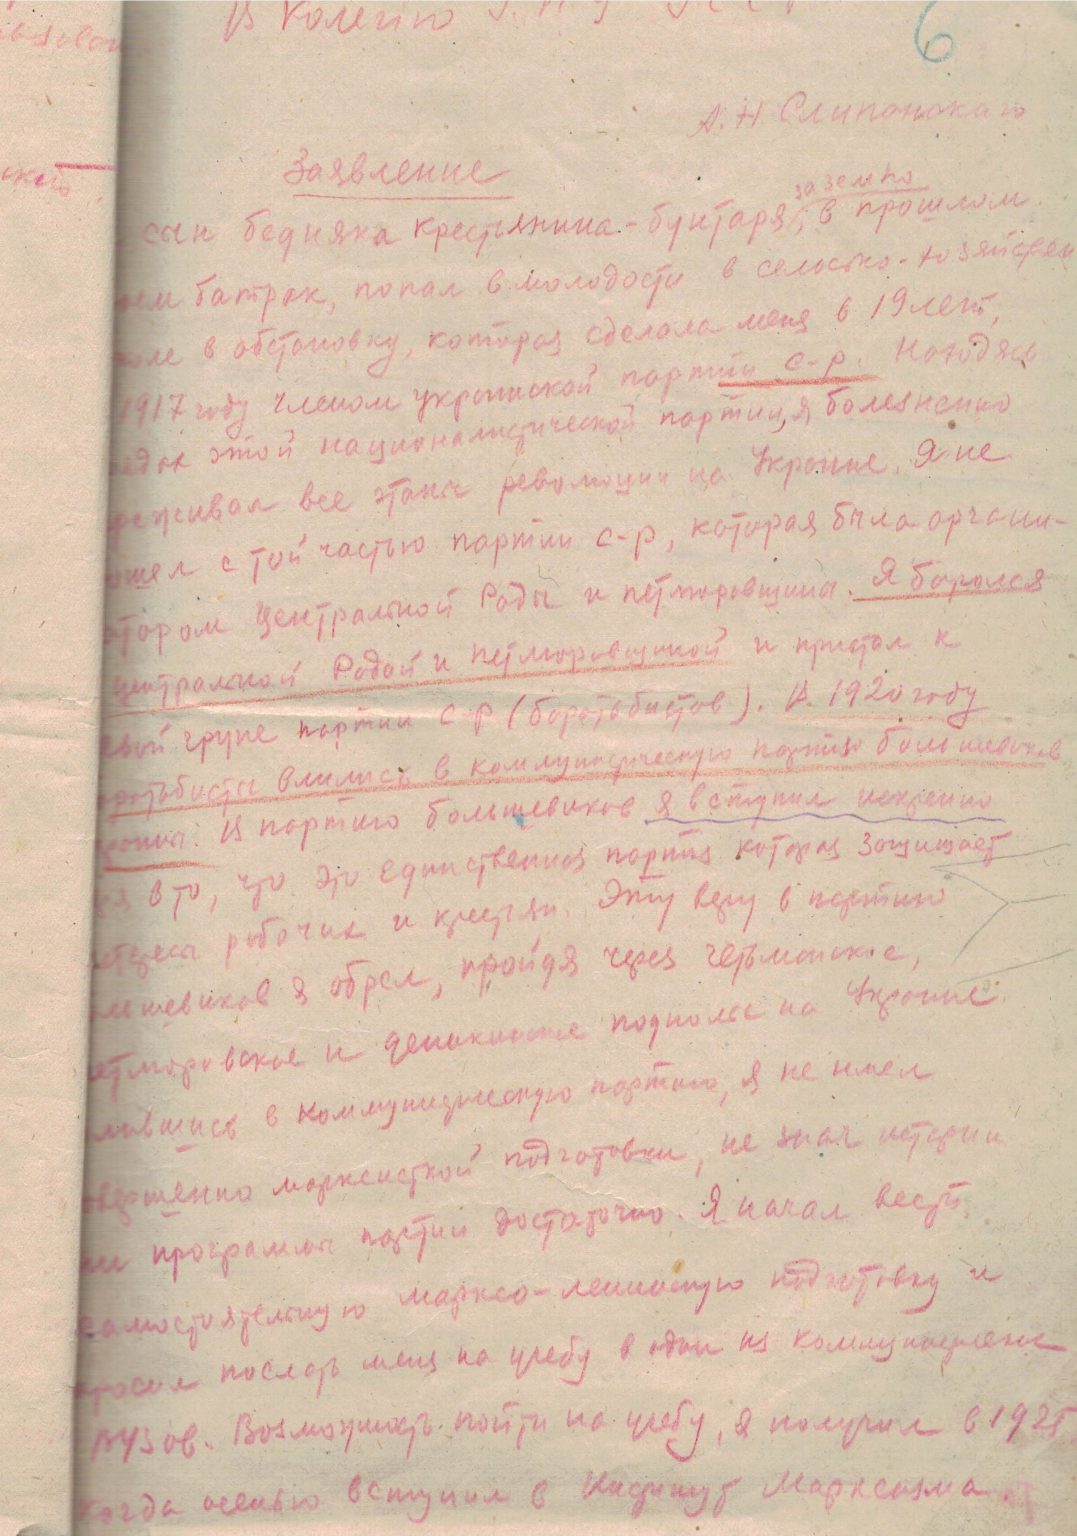 В Колегию
6
А. Н. Слипанского
Заявление
за землю
сын бедняка крестьянина-бунтаря, в прошлом
батрак, попал в молодости в сельско-хозяйствен
в обстановку, которая сделала меня в 19 лет,
1917 году членом украинской партии с-р. Находясь
этой националистической партии, я болезненно
все этапы революции на Украине. Я не
с той частью партии с-р, которая была органи-
Центральной Рады и петлюровщины. Я боролся
центральной Радой и петлюровщиной и пристал к
групе партии с-р (боротьбистов). В 1920 году
влились в коммунистическую партию большевиков
В партию большевиков я вступил искренно
в то, что это единственная партия которая защищает
рабочих и крестьян. Эту веру в партию
я обрел, пройдя через гетьманское,
и деникинское подполье на Украине.
в коммунистическую партию, я не имел
марксисткой подготовки, не знал истории
программы партии достаточно. Я начал вести
самостоятельную марксо-ленинскую подготовку и
послать меня на учебу в один из коммунистических
ВУЗов. Возможность пойти на учебу, я получил в 1925
когда осенью вступил в Институт Марксизма.